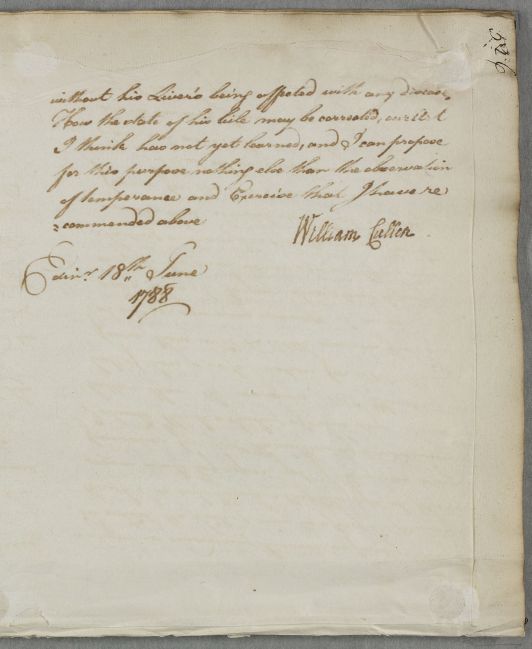 without his Liver's being affected with any disease.
How the state of his bile may be corrected, our art
I think has not yet learned, and I can propose
for this purpose nothing else than the observation
of temperance and Exercise that I have re
=commended above
William Cullen
Edinr. 18th June
1788